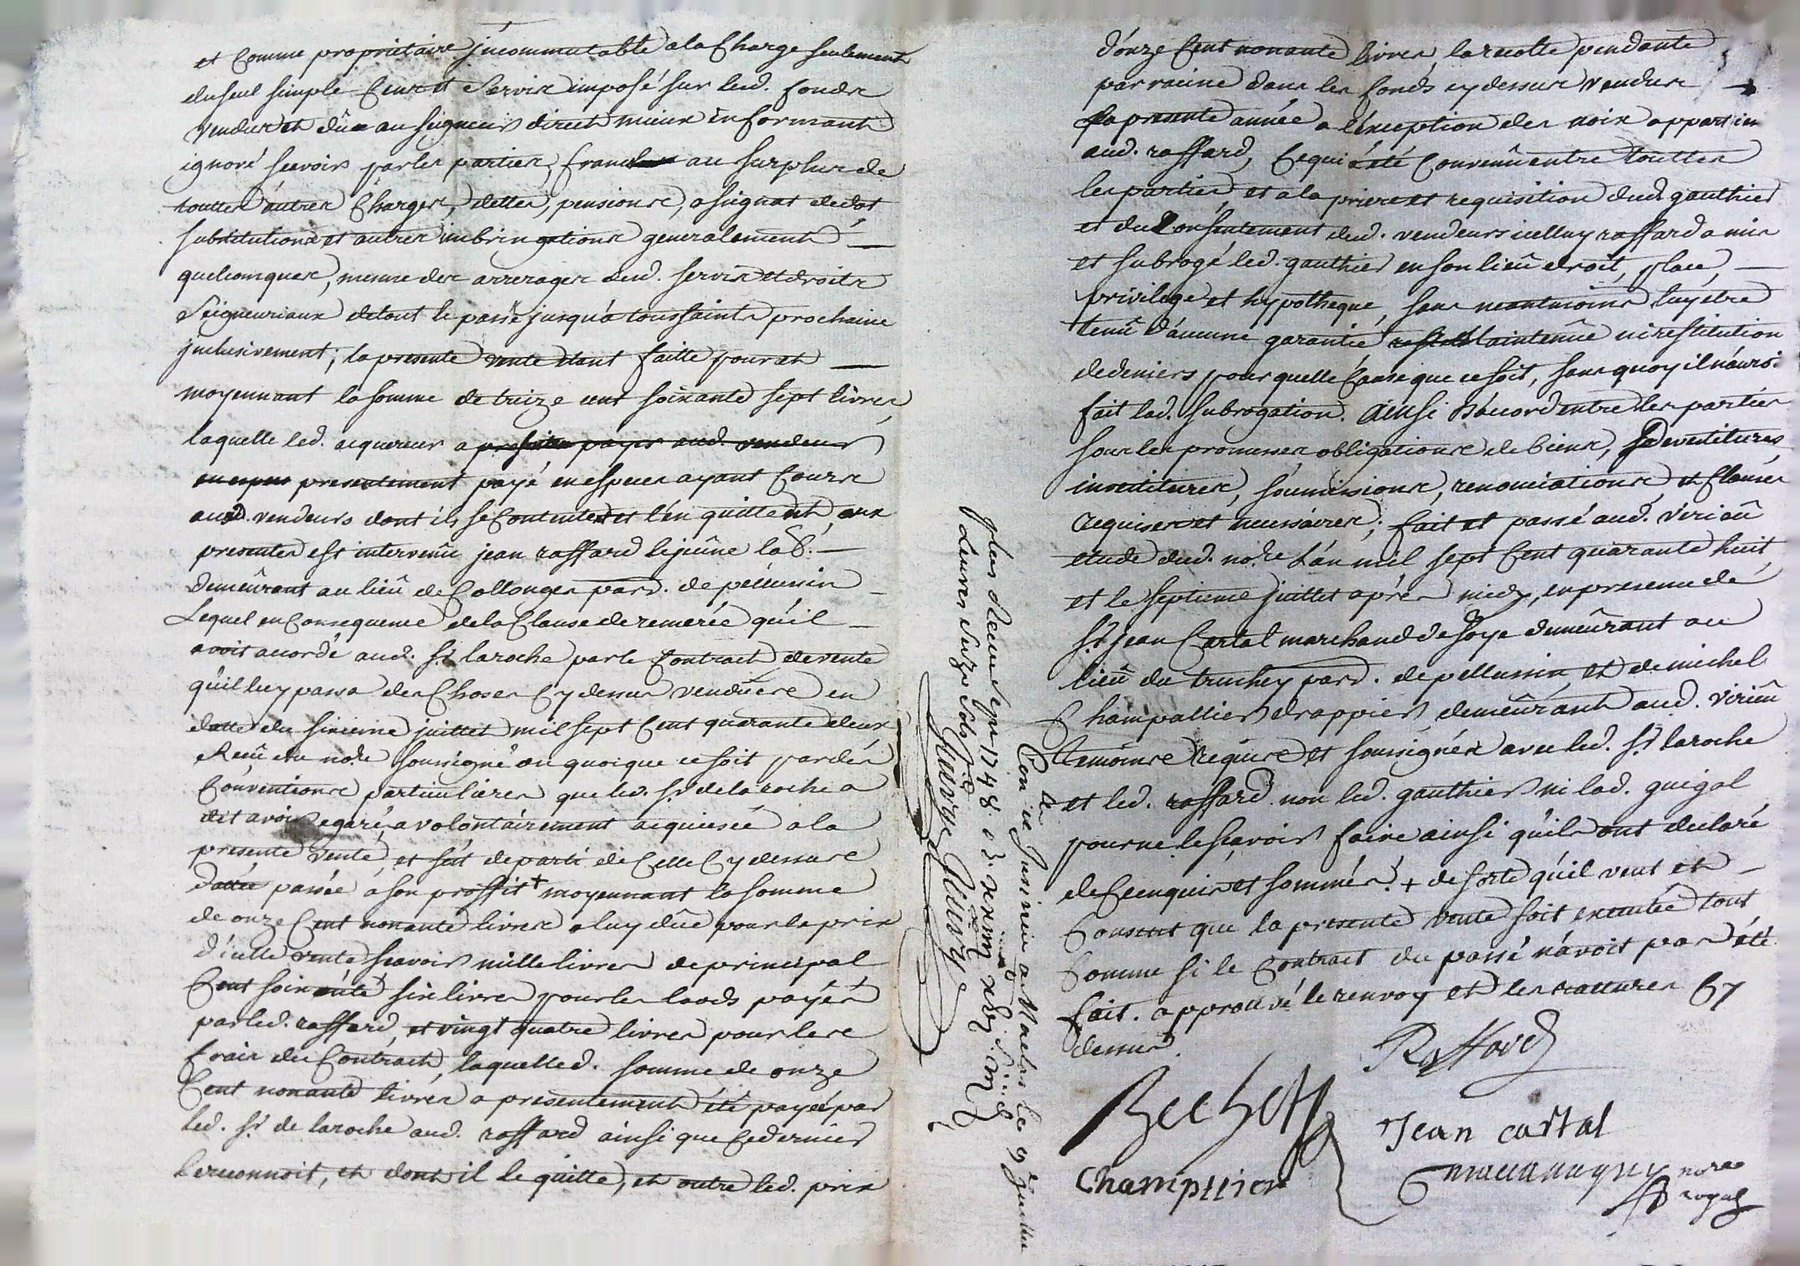 et Comme proprietaire jncommutable a la Charge seulement
du seul simple Cens et Servis imposé sur led. fonds
vendus et dûs au seigneur direct mieux informant
ignoré scavoir par les parties, franc au surplus de
touttes autres Charges, dettes, pensions, assignat de dot
substitutions et autres imbringations generalement
quelconques, mesme des arrerages dud. servis et droits
Seigneuriaux de tout le passé jusqu'a toussaints prochaine
jnclusivement; la presente vente etant faitte pour et
moyennant la somme de treize cent soixante sept livres
laquelle led. acquereur a payer aud. vendeur
presentement payé en especes ayant Cours
aud. vendeurs dont ils se Contentent et l'en quittent, aux
presentes est intervenû jean raffard le jeûne lab.
demeûrant au lieû de Collonges parr. de pelussin
Lequel en Consequence de la Clause de remeré qu'il
avoit accordé aud. Sr laroche par le Contract de vente
qu'il luy passa des Choses Cy dessus venduëes en
datte du sixieme juillet mil sept Cent quarante deux
Reçû du nore soussigné ou quoique ce soit par des
Conventions particulieres que led. Sr de la roche a
dit avoir egaré, a volontairement acquiescé a la
presente vente, et s'est departi de Celle Cy dessus
dattée passée à son proffit + moyennant la somme
de onze Cent nonante livres a luy dûe pour le prix
d'icelle vente scavoir mille livres de principal
Cent soixante six livres pour les laods payés
par led. raffard, et vingt quatre livres pour les
frais du Contract, laquelle d. somme de onze
Cent nonante livres a presentement été payée par
led. Sr de laroche aud. raffard ainsi que Ce dernier
le reconnoit, et dont il le quitte, et outre led. prix
plus Reçu Sept 1748
Leuvres Suze Sols
Con.lé Jnsinué a Maclas le 9 Juillet
d'onze Cent nonante livres, la recolte pendante
par racine dans les fonds cy dessus vendus
la presente année a l'exception des noix appartien
aud. raffard, Ce qui a été Convenû entre touttes
les parties, et a la priere et requisition dud. gauthier
et du Consentement dud. vendeurs icelluy raffard a mis
et subrogé led. gauthier en son lieû droit, place,
privilege et hypotheque, sans neantmoins luy être
tenû d'aucune garantie maintenûe ni restitution
de deniers pour quelle Cause que ce soit, sans quoy il n'auroit
fait lad. subrogation. Ainsi d'accord entre les parties
sous les promesses obligations de biens, Devestitures
investitures, soumissions, renonciations et Clauses
requises et necessaires; fait et passé aud. virieû
etude dud. nore L'an mil sept Cent quarante huit
et le septieme juillet après midy, en presence de
Sr jean Cartal marchand de soye demeûrant au
lieû du truchey parr. de pellussin et de michel
Champallier drappier demeûrant aud. virieû
temoins requis et soussignés avec led. Sr laroche
et led. raffard non led. gauthier ni lad. guigal
pour ne le scavoir faire ainsi qu'ils ont declaré
de Ce enquis et sommés. + de sorte qu'il veut et
Consent que la presente vente soit executée tout
Comme si le Contract du passé n'avoit pas été
fait. approuvé le renvoy et les rattures Cy
dessus.
Raffard
Bechet
Jean cartal
Champalier
nore
royal